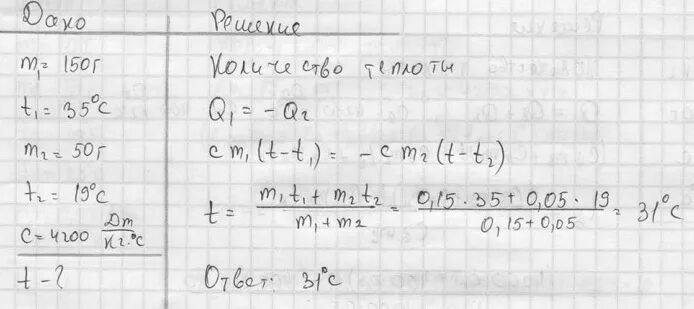 Дано
m₁ = 150г
t₁ = 35°C
m₂ = 50г
t₂ = 19°C
C = 4200 Дж/кг·°C
t - ?
Решение
Количество теплоты
Q₁ = - Q₂
c m₁ (t - t₁) = - c m₂ (t - t₂)
t = (m₁ t₁ + m₂ t₂)/(m₁ + m₂) = (0,15 · 35 + 0,05 · 19)/(0,15 + 0,05) = 31°C
Ответ: 31°C